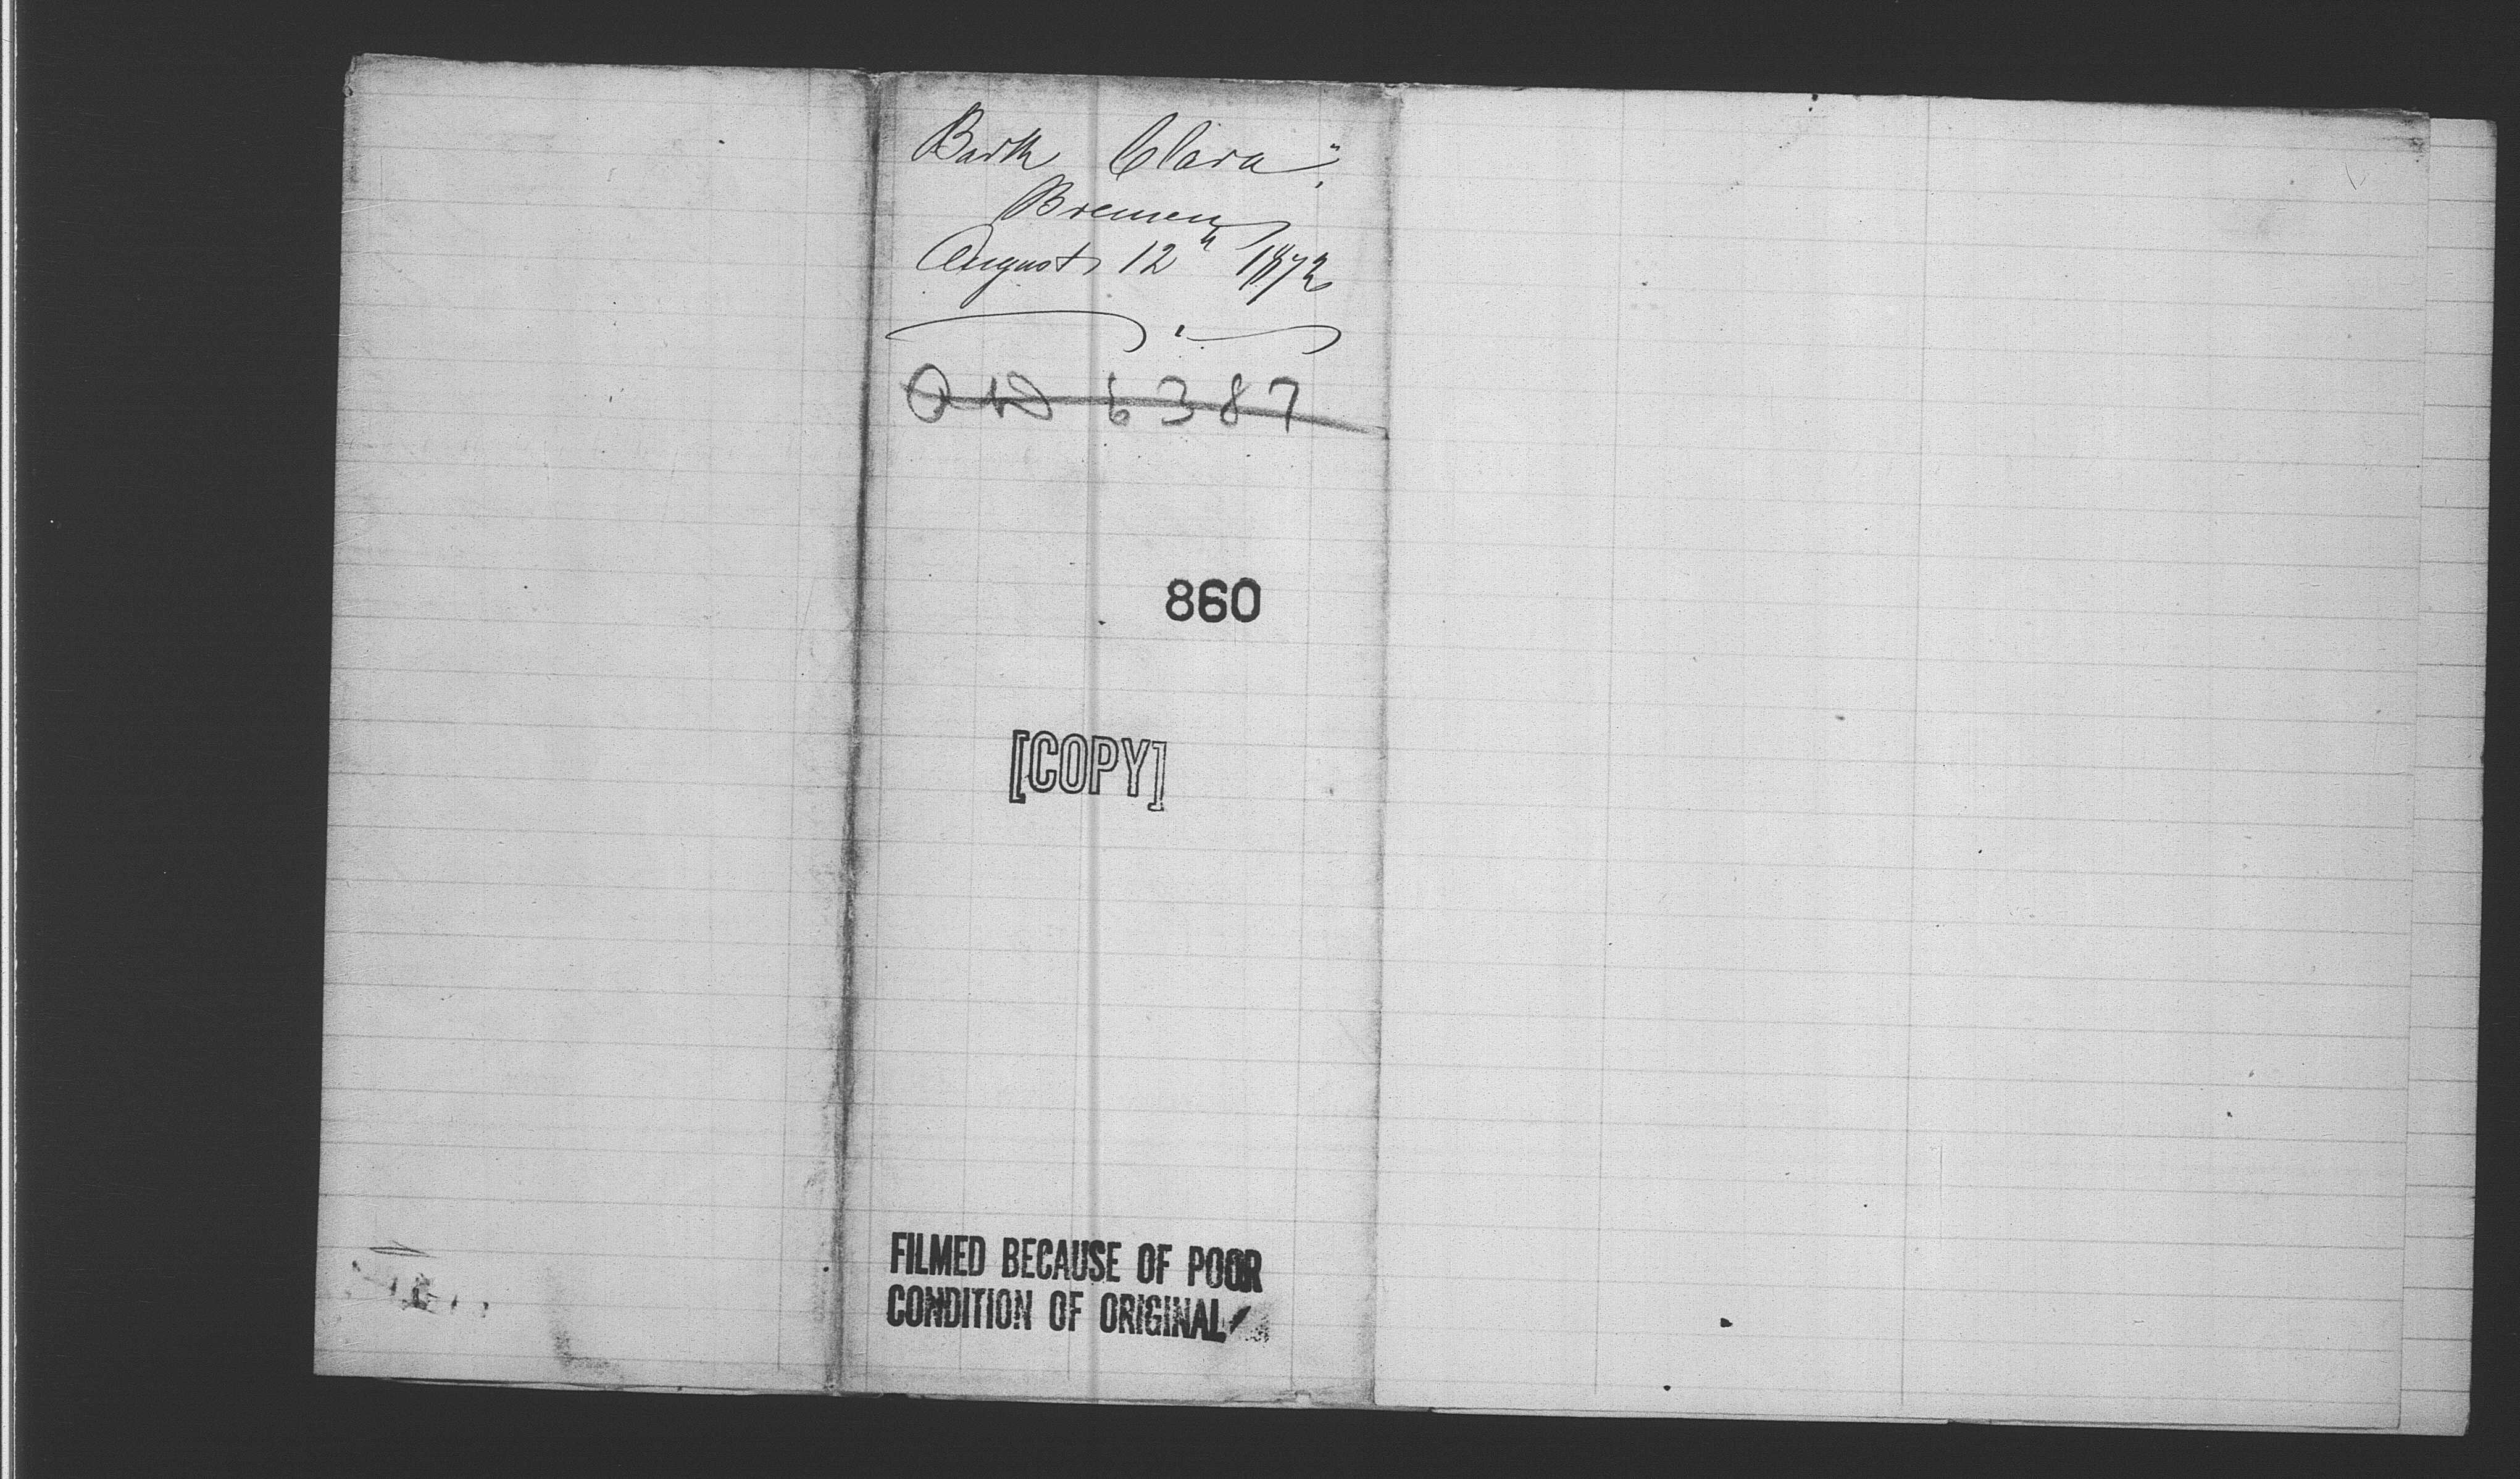 Bark Clara".
Bremen
August 12th 1872
6387
860
[COPY]
FILMED BECAUSE OF POOR
CONDITION OF ORIGINAL